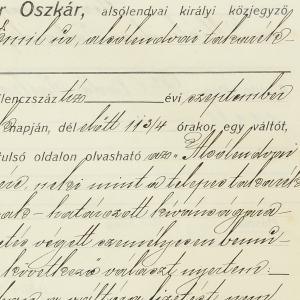 r Oszkár, alsólendvai királyi közjegyző
Emil úr, alsólendvai takarék-
lencszáz tíz évi szeptember
napján, dél előtt 11 3/4 órakor egy váltót,
tulsó oldalon olvasható az "Alsólendvai
neki mint a telepes takarék
nak - határozott kívánságára
végett személyesen bemu-
következő választ nyertem:
a váltó fizetést nem